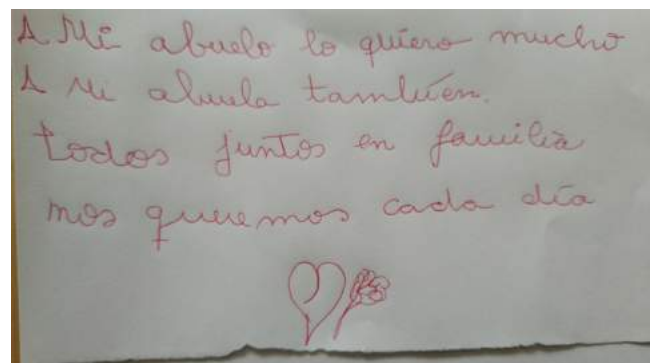 A Mi abuelo lo quiero mucho
A Mi abuela también.
todos juntos en familia
nos queremos cada día